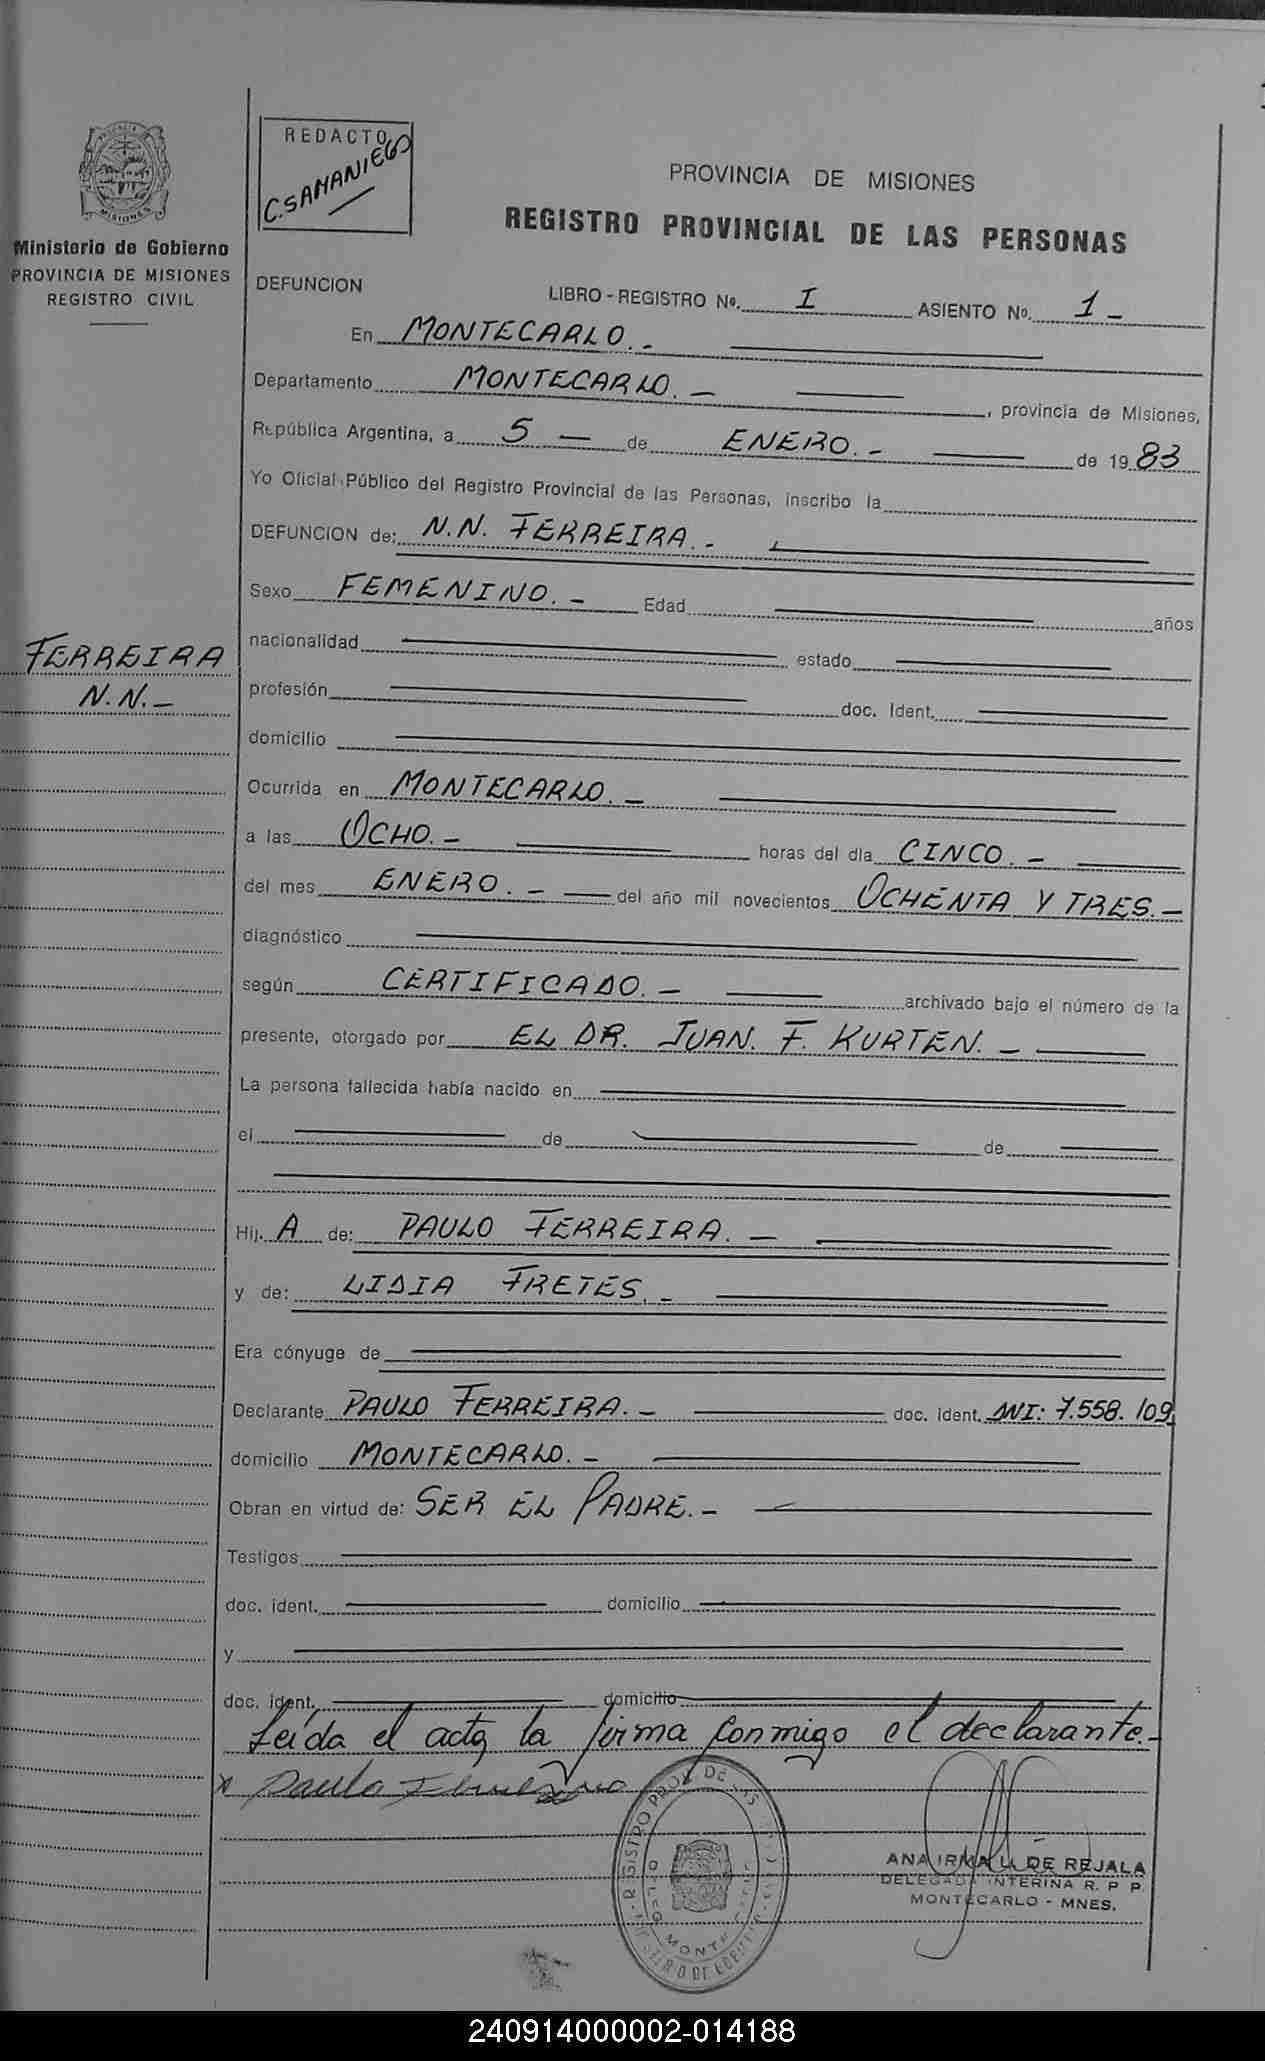 REDACTO
C. SAMANIEGO
PROVINCIA DE MISIONES
REGISTRO PROVINCIAL DE LAS PERSONAS
MISIONES
Ministerio de Gobierno
PROVINCIA DE MISIONES
REGISTRO CIVIL
DEFUNCION
LIBRO - REGISTRO Nº. I ASIENTO Nº. 1 -
En MONTECARLO. -
Departamento MONTECARLO. - , provincia de Misiones,
República Argentina, a 5 — de ENERO. - de 19 83
Yo Oficial Público del Registro Provincial de las Personas, inscribo la
DEFUNCION de: N.N. FERREIRA. -
Sexo FEMENINO. - Edad años
FERREIRA
N.N. -
nacionalidad estado
profesión doc. Ident.
domicilio
Ocurrida en MONTECARLO. -
a las OCHO. - horas del día CINCO. -
del mes ENERO. - del año mil novecientos OCHENTA Y TRES. -
diagnóstico
según CERTIFICADO. - archivado bajo el número de la
presente, otorgado por EL DR. JUAN. F. KURTEN. -
La persona fallecida había nacido en
el de de
Hij. A de: PAULO FERREIRA. -
y de: LIDIA FRETES. -
Era cónyuge de
Declarante PAULO FERREIRA. - doc. ident. DNI: 7.558.109
domicilio MONTECARLO. -
Obran en virtud de: SER EL PADRE. -
Testigos
doc. ident. domicilio
y
doc. ident. domicilio
Leída el acta, la firma conmigo el declarante. -
x Paulo
ANA IRMA U. DE REJALA
DELEGADA INTERINA R. P P.
MONTECARLO - MNES.
240914000002-014188